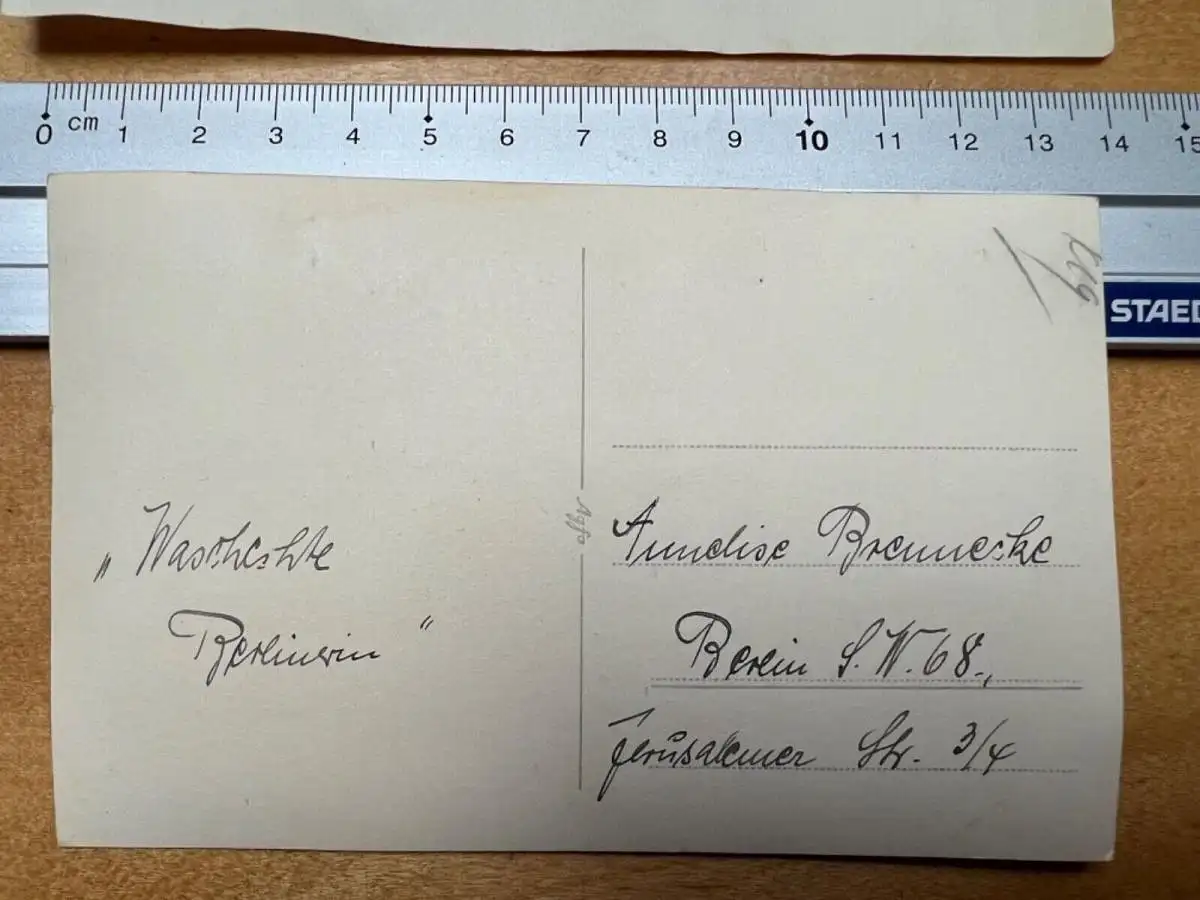 0 cm 1 2 3 4 5 6 7 8 9 10 11 12 13 14 15
STAED
Agfa
„Waschechte
Berlinerin“
Annelise Brennecke
Berlin S.W. 68.,
Jerusalemer Str. 3/4